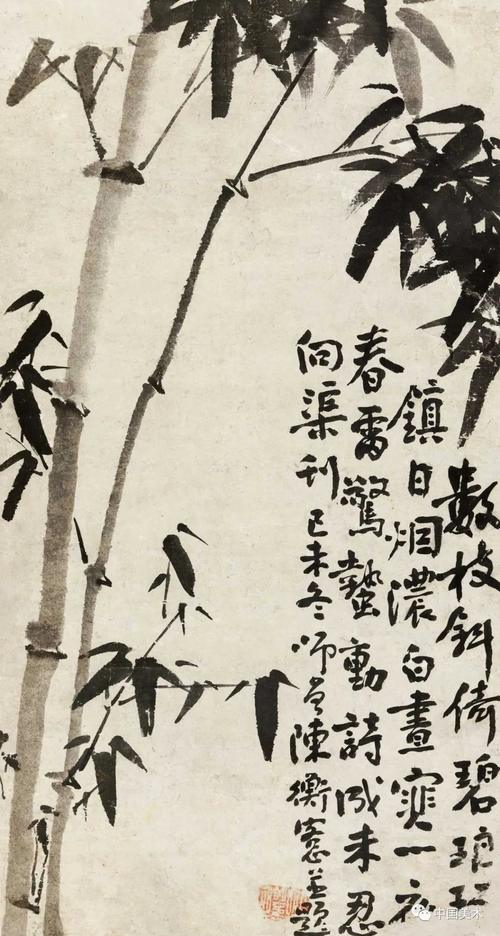 數枝斜倚碧琅玕
鎮日烟濃白晝寒一夜
春雷驚蟄動詩成未忍
向渠刊 己未冬師曾陳衡愙並題
中国美术